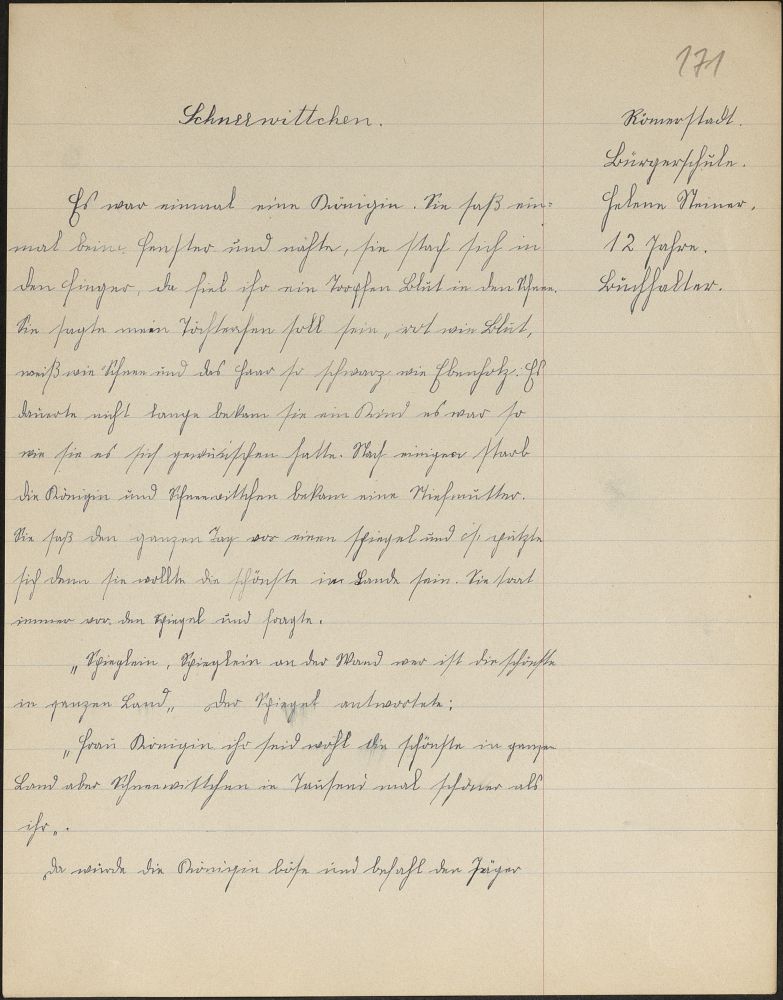 171
Schneewittchen.
Römerstadt.
Bürgerschule.
Helene Steiner.
12 Jahre.
Buchhalter.
Es war einmal eine Königin. Sie saß ein-
mal beim Fenster und nähte, sie stach sich in
den Finger, da fiel ihr ein Tropfen Blut in den Schnee.
Sie sagte mein Töchterchen soll sein „ rot wie Blut,
weiß wie Schnee und das Haar so schwarz wie Ebenholz. Es
dauerte nicht lange bekam sie ein Kind es war so
wie sie es sich gewünschen hatte. Nach einigen starb
die Königin und Schneewittchen bekam eine Stiefmutter.
Sie saß den ganzen Tag vor einen Spiegel und putzte
sich denn sie wollte die schönste im Lande sein. Sie trat
immer vor den Spiegel und fragte.
„ Spieglein, Spieglein an der Wand wer ist die schönste
in ganzen Land„ Der Spiegel antwortete:
„ Frau Königin ihr seid wohl die schönste in ganzen
Land aber Schneewittchen ie Tausend mal schöner als
ihr„.
Da wurde die Königin böse und befahl den Jäger